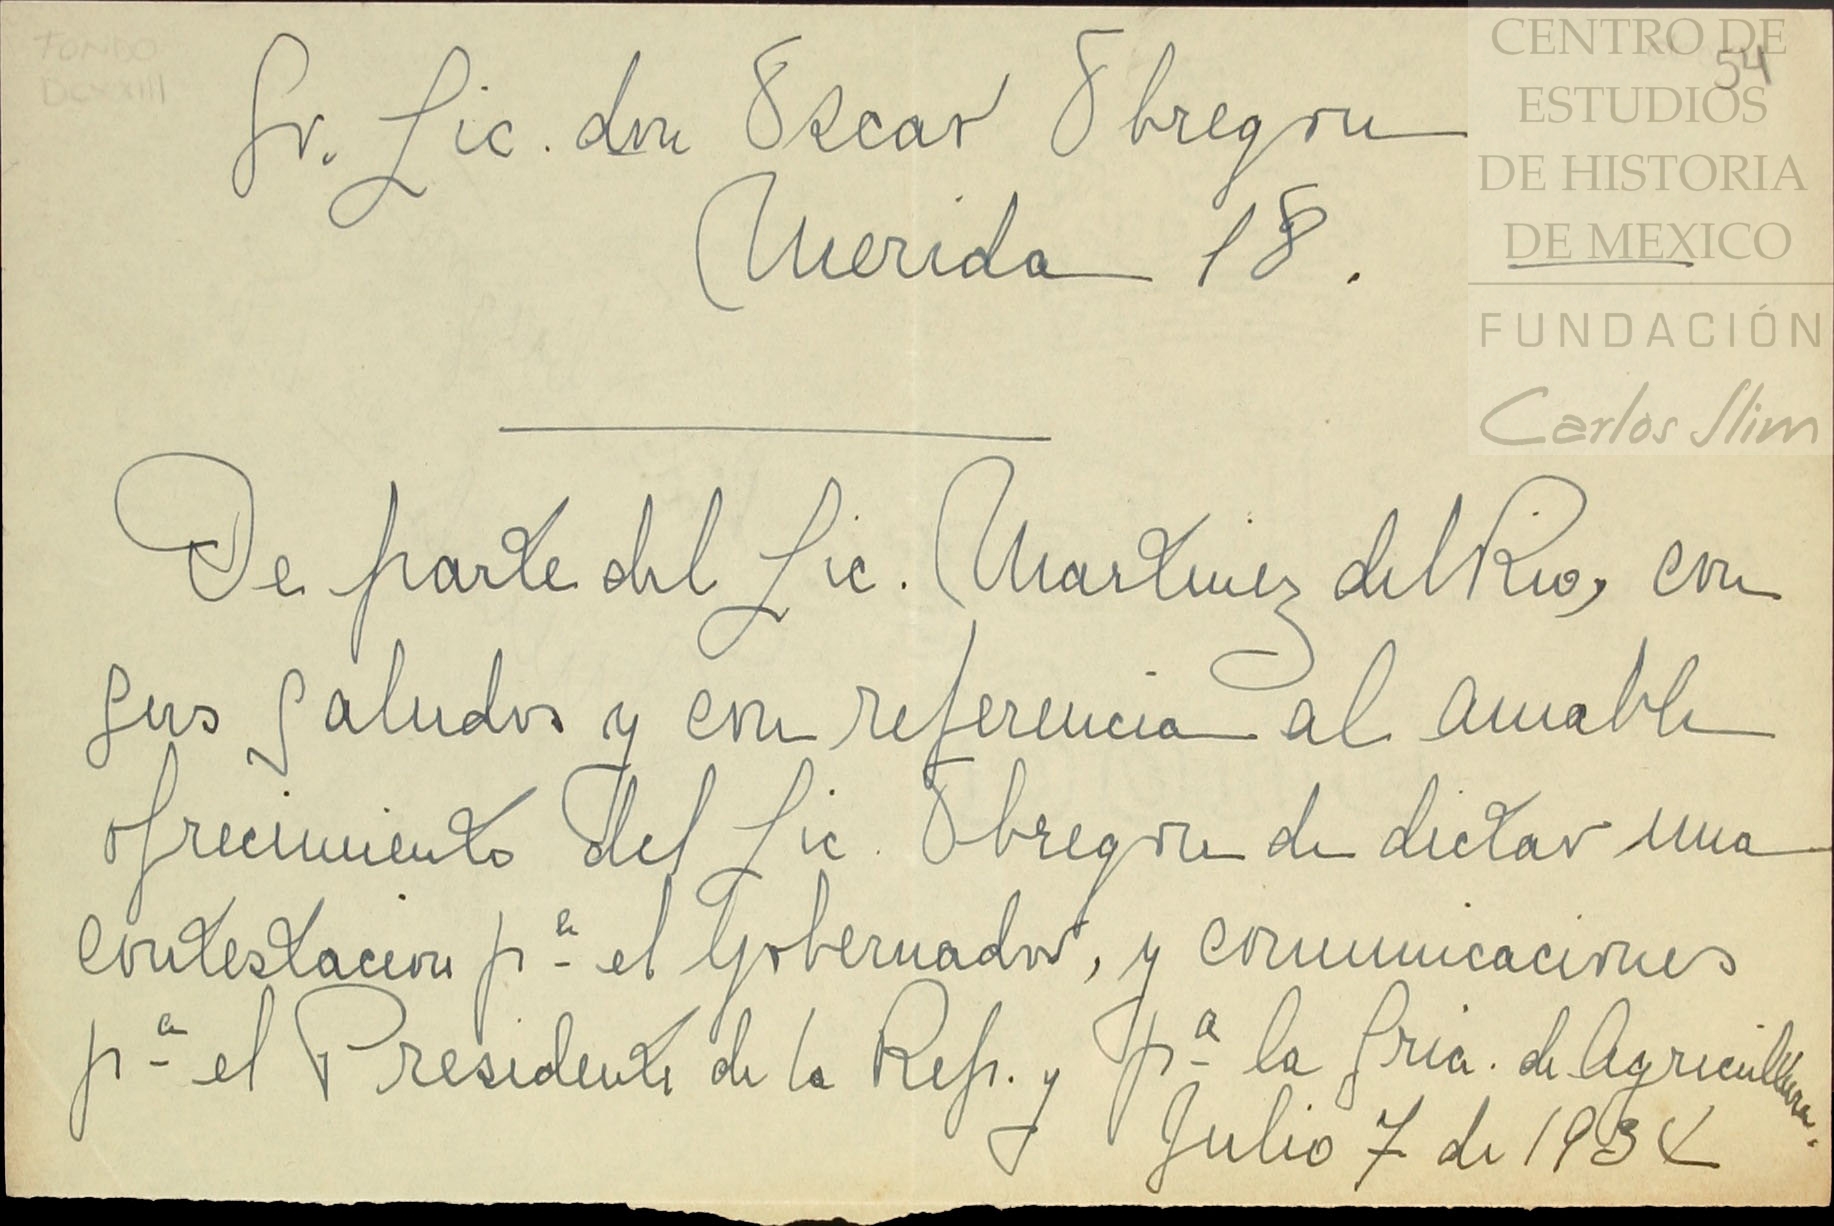 FONDO
DCXXIII
54
CENTRO DE
ESTUDIOS
DE HISTORIA
DE MEXICO
FUNDACIÓN
Carlos Slim
Sr. Lic. don Oscar Obregon
Merida 18.
De parte del Lic. Martinez del Rio, con
sus saludos y con referencia al amable
ofrecimiento del Lic. Obregon de dictar una
contestacion pª el Gobernador, y comunicaciones
pª el Presidente de la Rep. y pª la Sria. de Agricultura.
Julio 7 de 1934